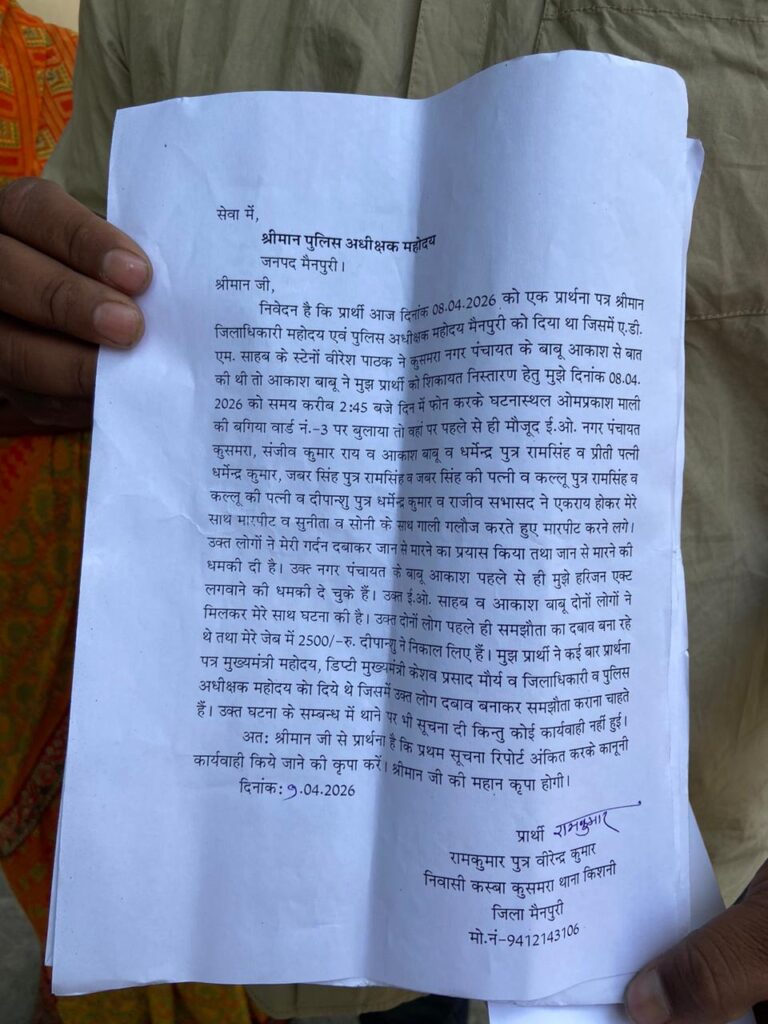 सेवा में,
श्रीमान पुलिस अधीक्षक महोदय
जनपद मैनपुरी।
श्रीमान जी,
निवेदन है कि प्रार्थी आज दिनांक 08.04.2026 को एक प्रार्थना पत्र श्रीमान
जिलाधिकारी महोदय एवं पुलिस अधीक्षक महोदय मैनपुरी को दिया था जिसमें ए.डी.
एम. साहब के स्टेनों वीरेश पाठक ने कुसमरा नगर पंचायत के बाबू आकाश से बात
की थी तो आकाश बाबू ने मुझ प्रार्थी को शिकायत निस्तारण हेतु मुझे दिनांक 08.04.
2026 को समय करीब 2:45 बजे दिन में फोन करके घटनास्थल ओमप्रकाश माली
की बगिया वार्ड नं.-3 पर बुलाया तो वहां पर पहले से ही मौजूद ई.ओ. नगर पंचायत
कुसमरा, संजीव कुमार राय व आकाश बाबू व धर्मेन्द्र पुत्र रामसिंह व प्रीती पत्नी
धर्मेन्द्र कुमार, जबर सिंह पुत्र रामसिंह व जबर सिंह की पत्नी व कल्लू पुत्र रामसिंह व
कल्लू की पत्नी व दीपान्शु पुत्र धर्मेन्द्र कुमार व राजीव सभासद ने एकराय होकर मेरे
साथ मारपीट व सुनीता व सोनी के साथ गाली गलौज करते हुए मारपीट करने लगे।
उक्त लोगों ने मेरी गर्दन दबाकर जान से मारने का प्रयास किया तथा जान से मारने की
धमकी दी है। उक्त नगर पंचायत के बाबू आकाश पहले से ही मुझे हरिजन एक्ट
लगवाने की धमकी दे चुके हैं। उक्त ई.ओ. साहब व आकाश बाबू दोनों लोगों ने
मिलकर मेरे साथ घटना की है। उक्त दोनों लोग पहले ही समझौता का दबाव बना रहे
थे तथा मेरे जेब में 2500/-रु. दीपान्शु ने निकाल लिए हैं। मुझ प्रार्थी ने कई बार प्रार्थना
पत्र मुख्यमंत्री महोदय, डिप्टी मुख्यमंत्री केशव प्रसाद मौर्य व जिलाधिकारी व पुलिस
अधीक्षक महोदय को दिये थे जिसमें उक्त लोग दबाव बनाकर समझौता कराना चाहते
हैं। उक्त घटना के सम्बन्ध में थाने पर भी सूचना दी किन्तु कोई कार्यवाही नहीं हुई।
अत: श्रीमान जी से प्रार्थना है कि प्रथम सूचना रिपोर्ट अंकित करके कानूनी
कार्यवाही किये जाने की कृपा करें। श्रीमान जी की महान कृपा होगी।
दिनांक: 9.04.2026
प्रार्थी रामकुमार
रामकुमार पुत्र वीरेन्द्र कुमार
निवासी कस्बा कुसमरा थाना किशनी
जिला मैनपुरी
मो.नं-9412143106